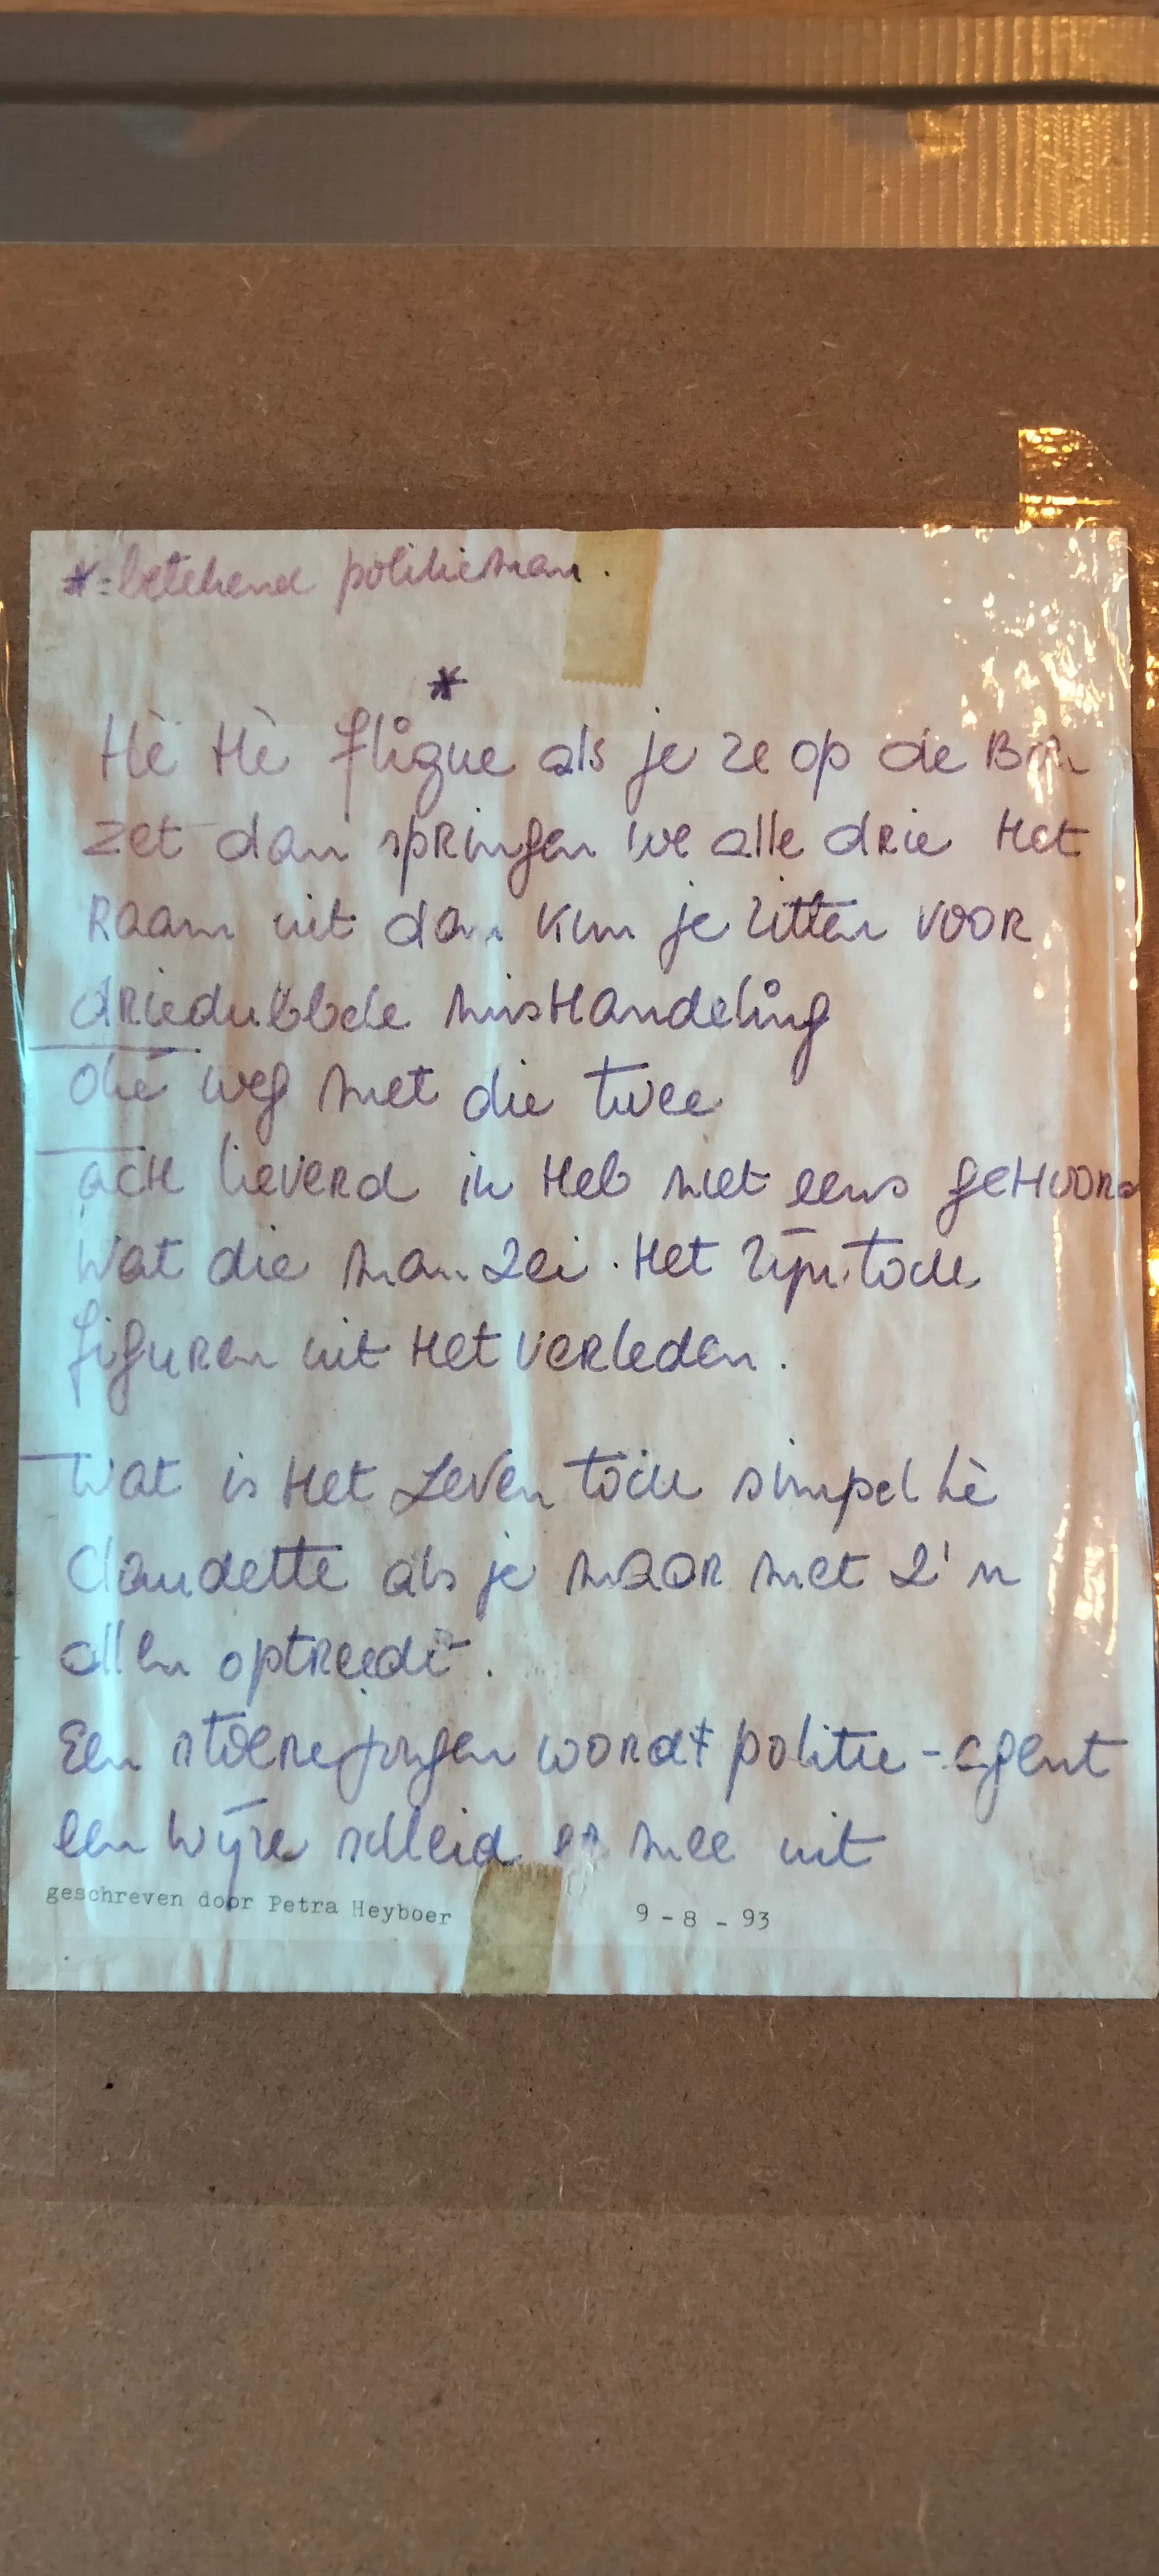 *= betekend politieman.
*
Hè Hè fligue als je ze op de
zet dan springen we alle drie Het
Raam uit dan kun je zitten VOOR
driedubbele misHandeling
olie weg met die twee
acH lieverd ik Heb niet eens geHoord
Wat die man zei. Het zijn toch
figuren uit Het verleden.
Wat is Het Leven toch simpel hè
Claudette als je maar met z'n
allen optreedt.
Een stoere jongen wordt politie-agent
een wijze scheid er mee uit
geschreven door Petra Heyboer 9-8-93